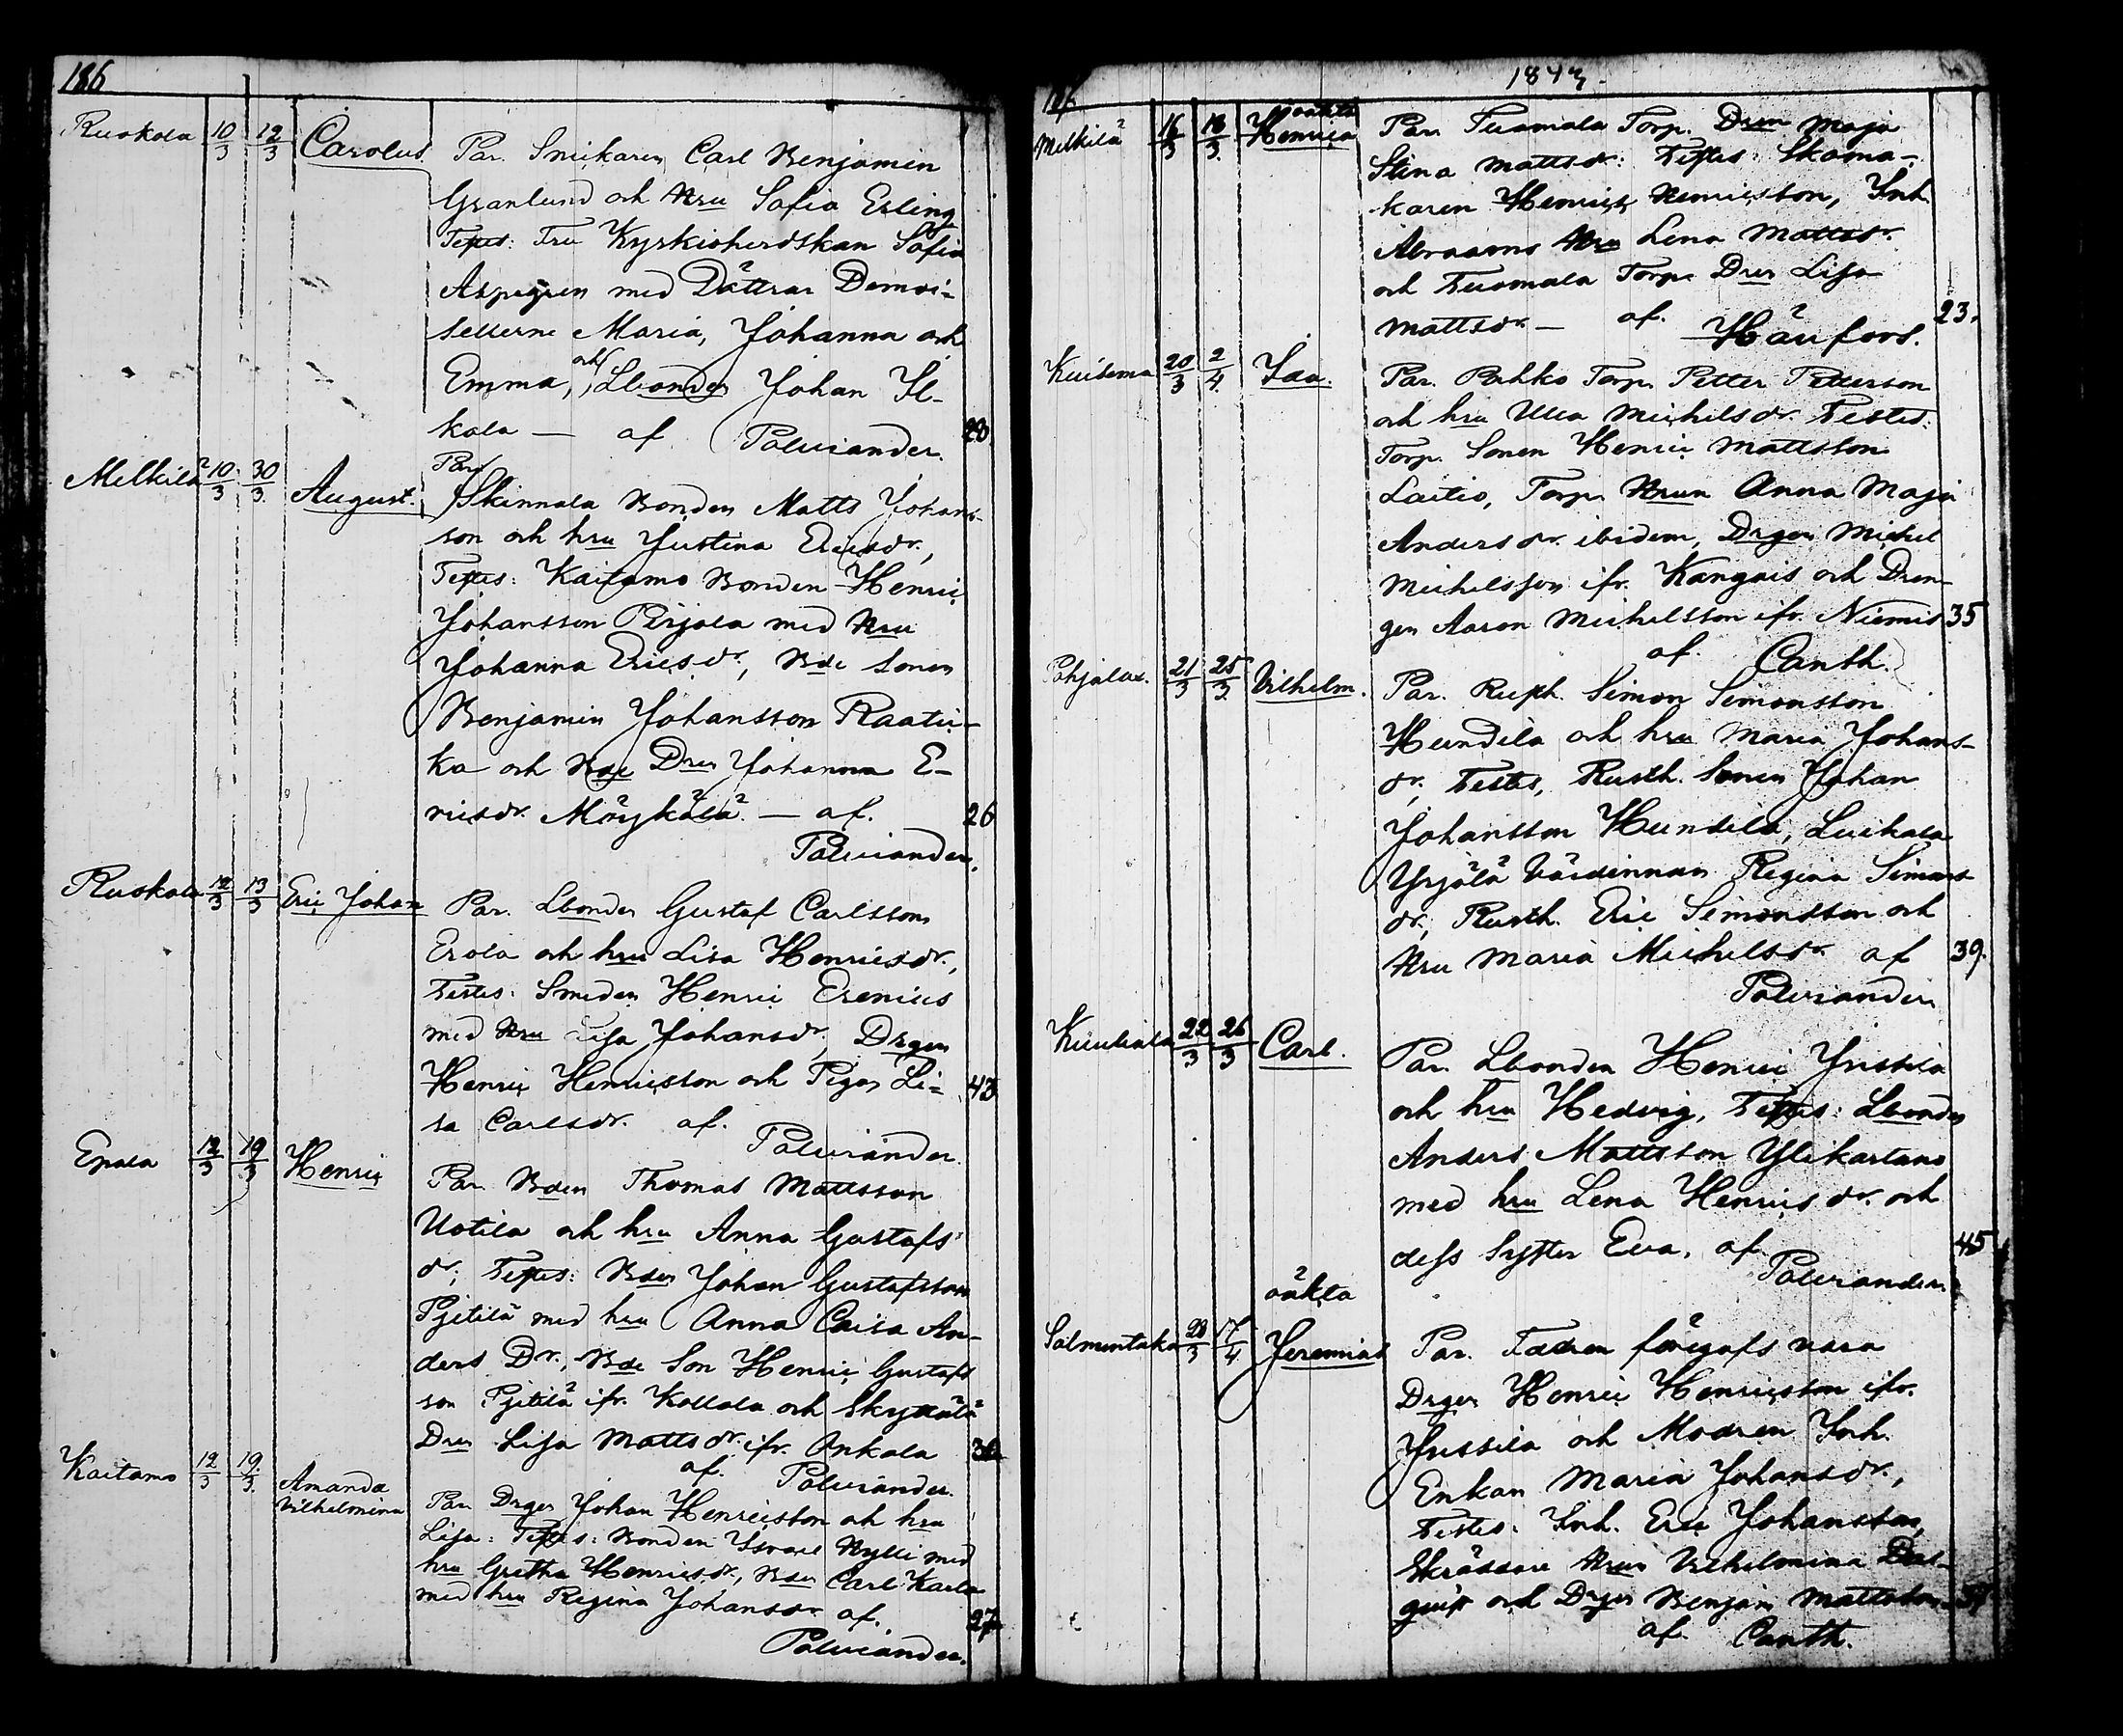 186
Ruskola 10/3 12/3 Carolus. Par. Snickaren Carl Benjamin
Granlund och Hru Sofia Erling
Testes: Fru Kyrkioherdskan Sofia
Aspegren med Döttrar Demoi-
sellerne Maria, Johanna och
Emma, och Lbonden Johan Il-
kala — af Palviander. 28.
Melkilä 10/3 30/3 August. Par. Skinnala Bonden Matts Johans-
son och hru Justina Ericsdr,
Testes: Kaitamo Bonden Henric
Johansson Pirjola med Hru
Johanna Ericsdr, Bde Sonen
Benjamin Johansson Raatii-
ka och Bde Dren Johanna E-
ricsdr. Möykälä. — af. 26
Palviander.
Ruskola 12/3 13/3 Eric Johan Par. Lbonden Gustaf Carlsson
Erola och hru Lisa Henricsdr,
Testes: Smeden Henric Erenius
med Hru Lisa Johansdr, Drgen
Henric Henricsson och Pigan Li-
sa Carlsdr. af. 43
Palviander.
Epala 12/3 19/3 Henric Par. Bden Thomas Mattsson
Uotila och hru Anna Gustafs
dr; Testes: Bden Johan Gustafsson
Pjetilä med hru Anna Caisa An-
ders Dr, Bde Son Henric Gustafs
son Pjetilä ifr. Kollola och Skyttälä
Dren Lisa Mattsdr. ifr. Ankola
af. Palviander.
Kaitamo 12/3 19/3 Amanda
Vilhelmina Par. Drgen Johan Henricsson och hru
Lisa: Testes: Bonden Israel Kylli med
hru Gretha Henricsdr, Bden Carl Karla
med hru Regina Johansdr af. 27.
Palviander.
186 1843.
Melkilä 16/3 18/3 oäkta
Henrica Par. Tuomala Torp. Dren Maja
Stina Mattsdr: Testes: Skoma-
karen Henric Henricsson, Inh.
Abrahams Hru Lena Mattsdr.
och Tuomala Torp. Dren Lisa
Mattsdr. — af. Häufors. 23.
Kuisema 20/3 2/4 Ida. Par. Pahko Torp. Petter Petterson
och hru Ulla Michelsdr. Testes:
Torp. Sonen Henric Mattsson
Laitio, Torp. Hrun Anna Maja
Andersdr. ibidem, Drgen Michel
Michelsson ifr. Kangais och Dren-
gen Aaron Michelsson ifr. Niemis 35
af. Canth.
Pohjalax. 21/3 25/3 Vilhelm. Par. Rusth. Simon Simonsson
Hundila och hru Maria Johans-
dr, Testes, Rusth. Sonen Johan
Johansson Hundila, Luikala
Yrjälä Värdinnan Regina Simons
dr, Rusth. Eric Simonsson och
Hru Maria Michelsdr. af 39.
Palviander
22/3 26/3 Carl. Par. Lbonden Henric Jussila
och hru Hedvig, Testes: Lbonden
Anders Mattsson Ylikartano
med hru Lena Henricsdr. och
dess Syster Eva, af 45
Palviander.
Salmentaka 28/3 17/4 oäkta
Jeremias Par. Fadren föregafs vara
Drgen Henric Henricsson ifr.
Jussila och Modren Inh.
Enkan Maria Johansdr,
Testes: Inh. Eric Johansson,
Skräddare Hrun Vilhelmina Dal-
quist och Drgen Benjam Mattsson
af. Canth.